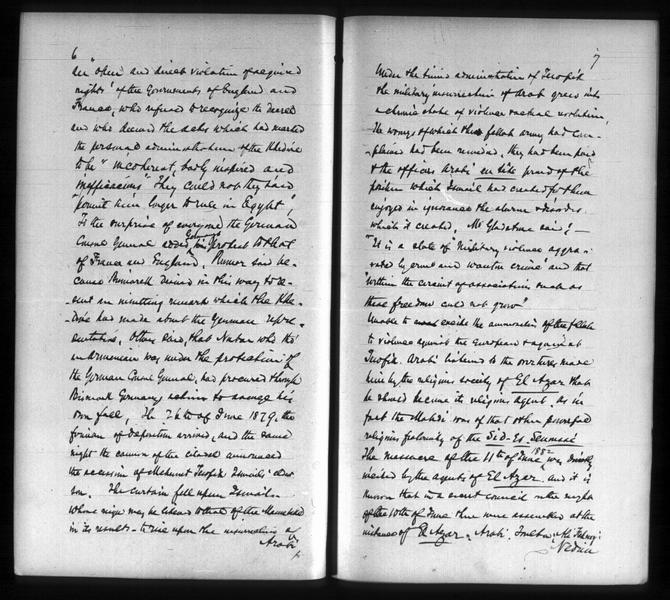 6
an "open and direct violation of acquired
rights" of the Governments of England and
France, who refused to recognize the Decree
and who deemed the acts which had marked
the personal administration of the Khedive
to be "incoherent, badly inspired and
inefficacious" They could not they said
permit him longer to rule in Egypt!
To the surprise of everyone the German
Consul General added Germany's protest to that
of France and England. Rumor said be-
cause Bismarck desired in this way to re-
sent an insulting remark which the Khe-
dive had made about the German repre-
sentative. Others said, that Nubar who tho'
an Armenian was under the protection of
the German Consul General, had procured through
Bismarck Germany's action to avenge his
own fall, The 26th of June 1879, the
firman of deposition arrived, and the same
night the cannon of the citadel announced
the accession of Mehemet Tewfik Ismail's elder
son. The curtain fell upon Ismail
whose reign may be likened to that of the
in its results - to rise upon the insurrection of
Arabi
7
Under the timid administration of Tewfik
the military insurrection of Arabi grew into
a chronic state of violence and revolution,
The wrongs of which the fellah army had com-
plained had been remedied, they had been paid
& the officers Arabi en tête proud of the
position which Ismail had created for them
enjoyed in ignorance the alarm & disorder
which it created, Mr Gladstone said; -
"It is a state of Military violence aggra-
vated by cruel and wanton crime" and that
"within the circuit of associations such as
these freedom could not grow"
Unable to excite the animosities of the fellah
to violence against the European & against
Tewfik. Arabi listened to the overtures made
him by the religious society of El Azar that
he should become its religious agent, as in
fact the Mahdi was of that other powerful
religious fraternity of the Sid-Es-Senoussi
The massacre of the 11th of June 1882 was directly
incited by the agents of El Azar and it is
known that in a secret council on the night
of the 10th of June there were assembled at the
instance of El Azar, Arabi
Nedim